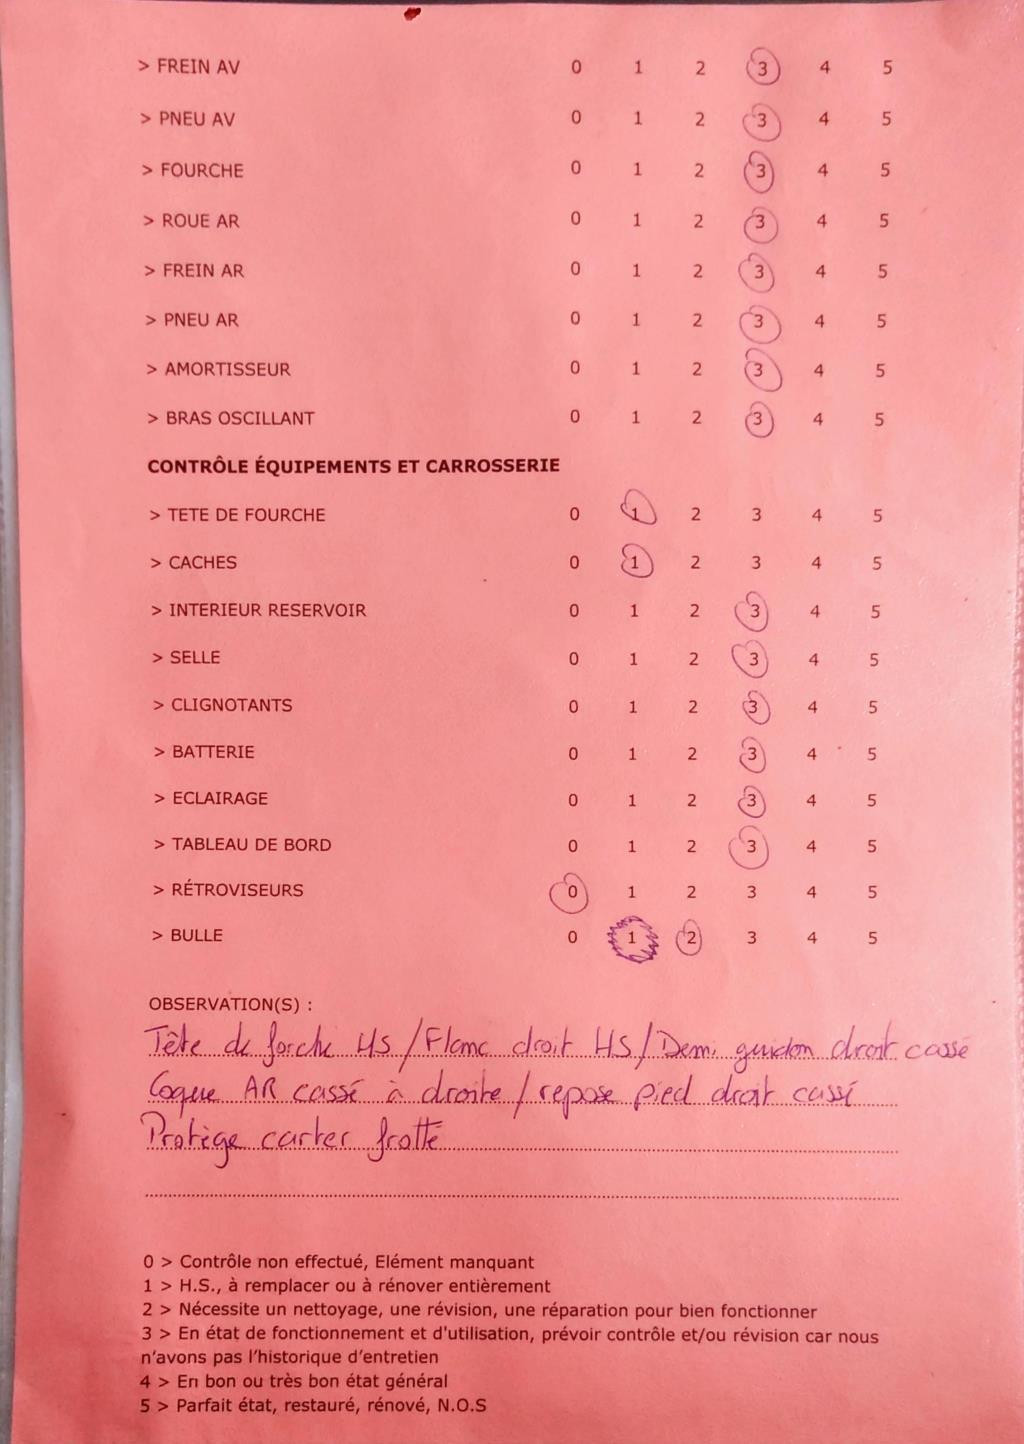 > FREIN AV 0 1 2 3 4 5
> PNEU AV 0 1 2 3 4 5
> FOURCHE 0 1 2 3 4 5
> ROUE AR 0 1 2 3 4 5
> FREIN AR 0 1 2 3 4 5
> PNEU AR 0 1 2 3 4 5
> AMORTISSEUR 0 1 2 3 4 5
> BRAS OSCILLANT 0 1 2 3 4 5
CONTRÔLE ÉQUIPEMENTS ET CARROSSERIE
> TETE DE FOURCHE 0 1 2 3 4 5
> CACHES 0 1 2 3 4 5
> INTERIEUR RESERVOIR 0 1 2 3 4 5
> SELLE 0 1 2 3 4 5
> CLIGNOTANTS 0 1 2 3 4 5
> BATTERIE 0 1 2 3 4 5
> ECLAIRAGE 0 1 2 3 4 5
> TABLEAU DE BORD 0 1 2 3 4 5
> RÉTROVISEURS 0 1 2 3 4 5
> BULLE 0 1 2 3 4 5
OBSERVATION(S) :
Tête de forche HS / Flanc droit HS / Demi guidon droit cassé
Coque AR cassé à droite / repose pied droit cassé
Protège carter frotté
0 > Contrôle non effectué, Elément manquant
1 > H.S., à remplacer ou à rénover entièrement
2 > Nécessite un nettoyage, une révision, une réparation pour bien fonctionner
3 > En état de fonctionnement et d'utilisation, prévoir contrôle et/ou révision car nous
n'avons pas l'historique d'entretien
4 > En bon ou très bon état général
5 > Parfait état, restauré, rénové, N.O.S